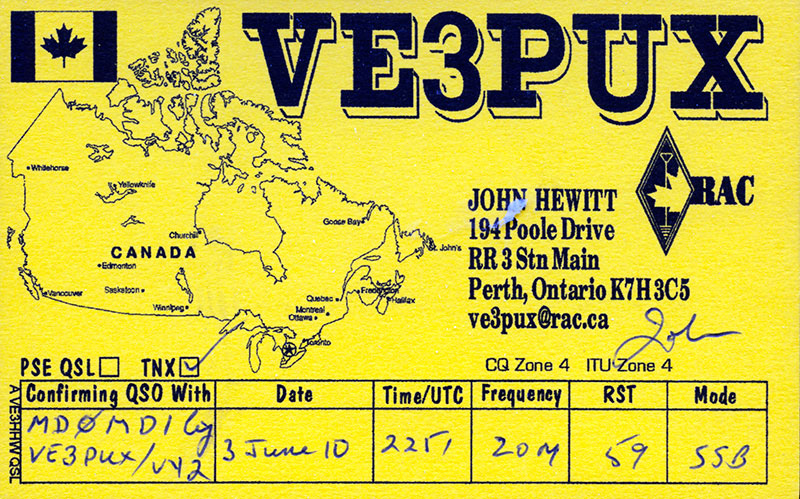 VE3PUX
Whitehorse
Yellowknife
Churchill
Goose Bay
St. John's
CANADA
Edmonton
Saskatoon
Vancouver
Winnipeg
Quebec
Fredericton
Halifax
Montreal
Ottawa
Toronto
RAC
JOHN HEWITT
194 Poole Drive
RR 3 Stn Main
Perth, Ontario K7H 3C5
ve3pux@rac.ca
John
CQ Zone 4 ITU Zone 4
PSE QSL TNX
Confirming QSO With Date Time/UTC Frequency RST Mode
MDØMDI by
VE3PUX/VY2 3 June 10 2251 20M 59 SSB
A VE3HHW QSL